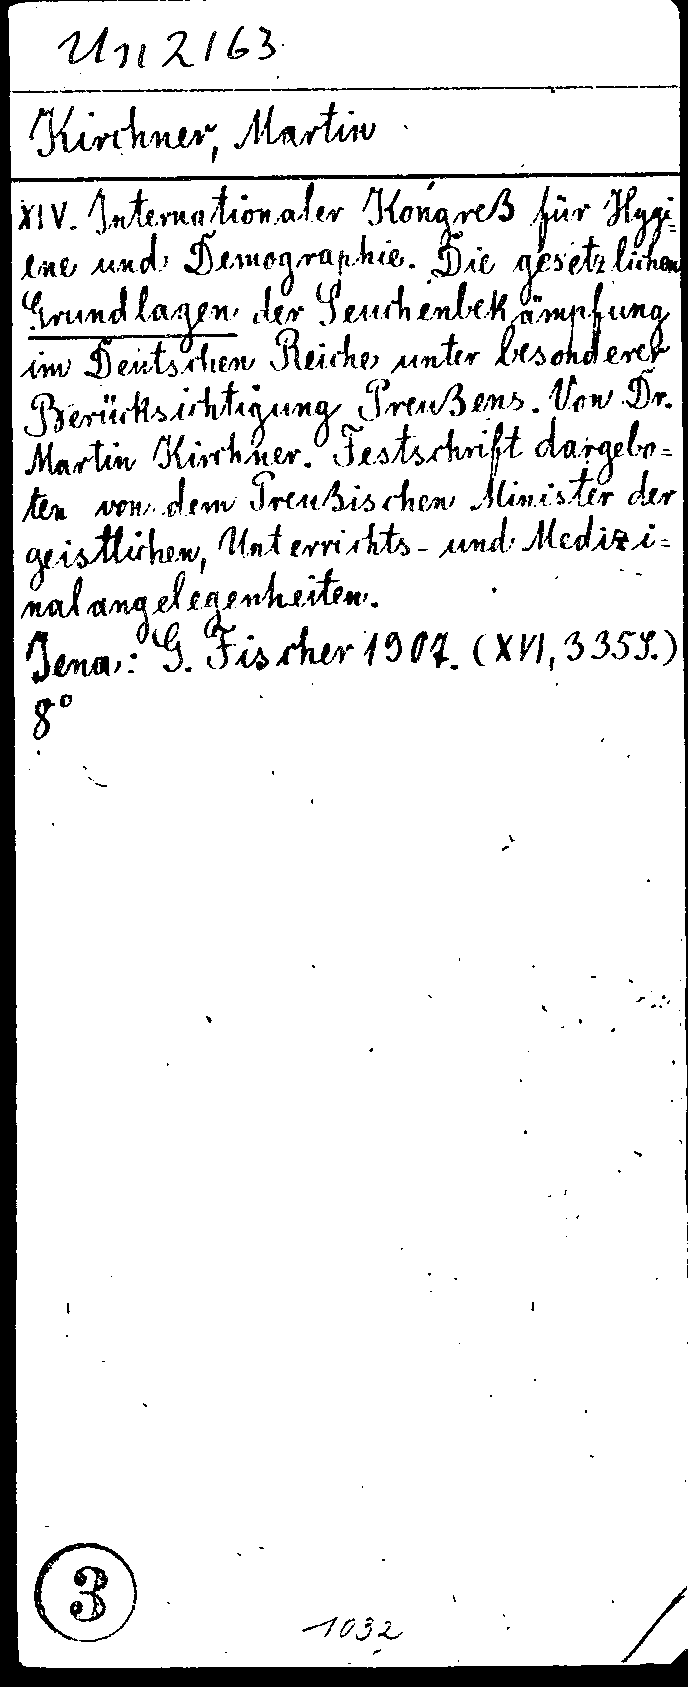 Un 2163
Kirchner, Martin
XIV. Internationaler Kongreß für Hygi=
ene und Demographie. Die gesetzlichen
Grundlagen der Seuchenbekämpfung
im Deutschen Reiche unter besonderer
Berücksichtigung Preußens. Von Dr.
Martin Kirchner. Festschrift dargebo=
ten von dem Preußischen Minister der
geistlichen, Unterrichts- und Medizi=
nalangelegenheiten.
Jena: G. Fischer 1907. (XVI, 335 S.)
8°
3
1032